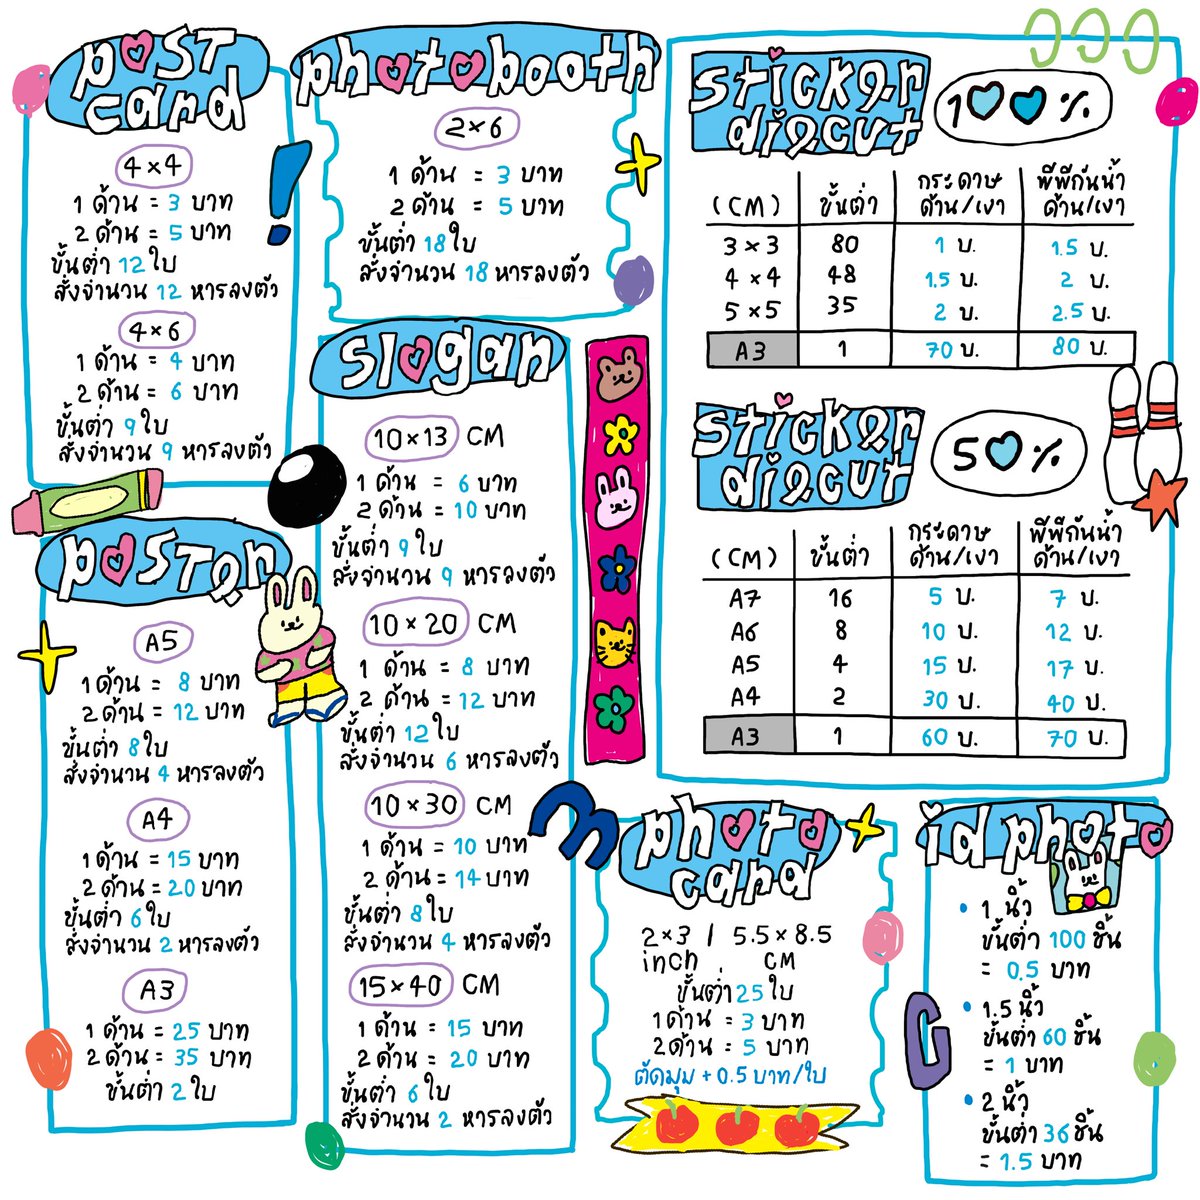 post
card
4×4
1 ด้าน = 3 บาท
2 ด้าน = 5 บาท
ขั้นต่ำ 12 ใบ
สั่งจำนวน 12 หารลงตัว
4×6
1 ด้าน = 4 บาท
2 ด้าน = 6 บาท
ขั้นต่ำ 9 ใบ
สั่งจำนวน 9 หารลงตัว
poster
A5
1 ด้าน = 8 บาท
2 ด้าน = 12 บาท
ขั้นต่ำ 8 ใบ
สั่งจำนวน 4 หารลงตัว
A4
1 ด้าน = 15 บาท
2 ด้าน = 20 บาท
ขั้นต่ำ 6 ใบ
สั่งจำนวน 2 หารลงตัว
A3
1 ด้าน = 25 บาท
2 ด้าน = 35 บาท
ขั้นต่ำ 2 ใบ
photobooth
2×6
1 ด้าน = 3 บาท
2 ด้าน = 5 บาท
ขั้นต่ำ 18 ใบ
สั่งจำนวน 18 หารลงตัว
slogan
10×13 CM
1 ด้าน = 6 บาท
2 ด้าน = 10 บาท
ขั้นต่ำ 9 ใบ
สั่งจำนวน 9 หารลงตัว
10×20 CM
1 ด้าน = 8 บาท
2 ด้าน = 12 บาท
ขั้นต่ำ 12 ใบ
สั่งจำนวน 6 หารลงตัว
10×30 CM
1 ด้าน = 10 บาท
2 ด้าน = 14 บาท
ขั้นต่ำ 8 ใบ
สั่งจำนวน 4 หารลงตัว
15×40 CM
1 ด้าน = 15 บาท
2 ด้าน = 20 บาท
ขั้นต่ำ 6 ใบ
สั่งจำนวน 2 หารลงตัว
sticker
diecut
100%
(CM) ขั้นต่ำ กระดาษ ด้าน/เงา พีพีกันน้ำ ด้าน/เงา
3×3 80 1 บ. 1.5 บ.
4×4 48 1.5 บ. 2 บ.
5×5 35 2 บ. 2.5 บ.
A3 1 70 บ. 80 บ.
sticker
diecut
50%
(CM) ขั้นต่ำ กระดาษ ด้าน/เงา พีพีกันน้ำ ด้าน/เงา
A7 16 5 บ. 7 บ.
A6 8 10 บ. 12 บ.
A5 4 15 บ. 17 บ.
A4 2 30 บ. 40 บ.
A3 1 60 บ. 70 บ.
photo
card
2×3 / 5.5×8.5
inch CM
ขั้นต่ำ 25 ใบ
1 ด้าน = 3 บาท
2 ด้าน = 5 บาท
ตัดมุม + 0.5 บาท/ใบ
id photo
• 1 นิ้ว
ขั้นต่ำ 100 ชิ้น
= 0.5 บาท
• 1.5 นิ้ว
ขั้นต่ำ 60 ชิ้น
= 1 บาท
• 2 นิ้ว
ขั้นต่ำ 36 ชิ้น
= 1.5 บาท